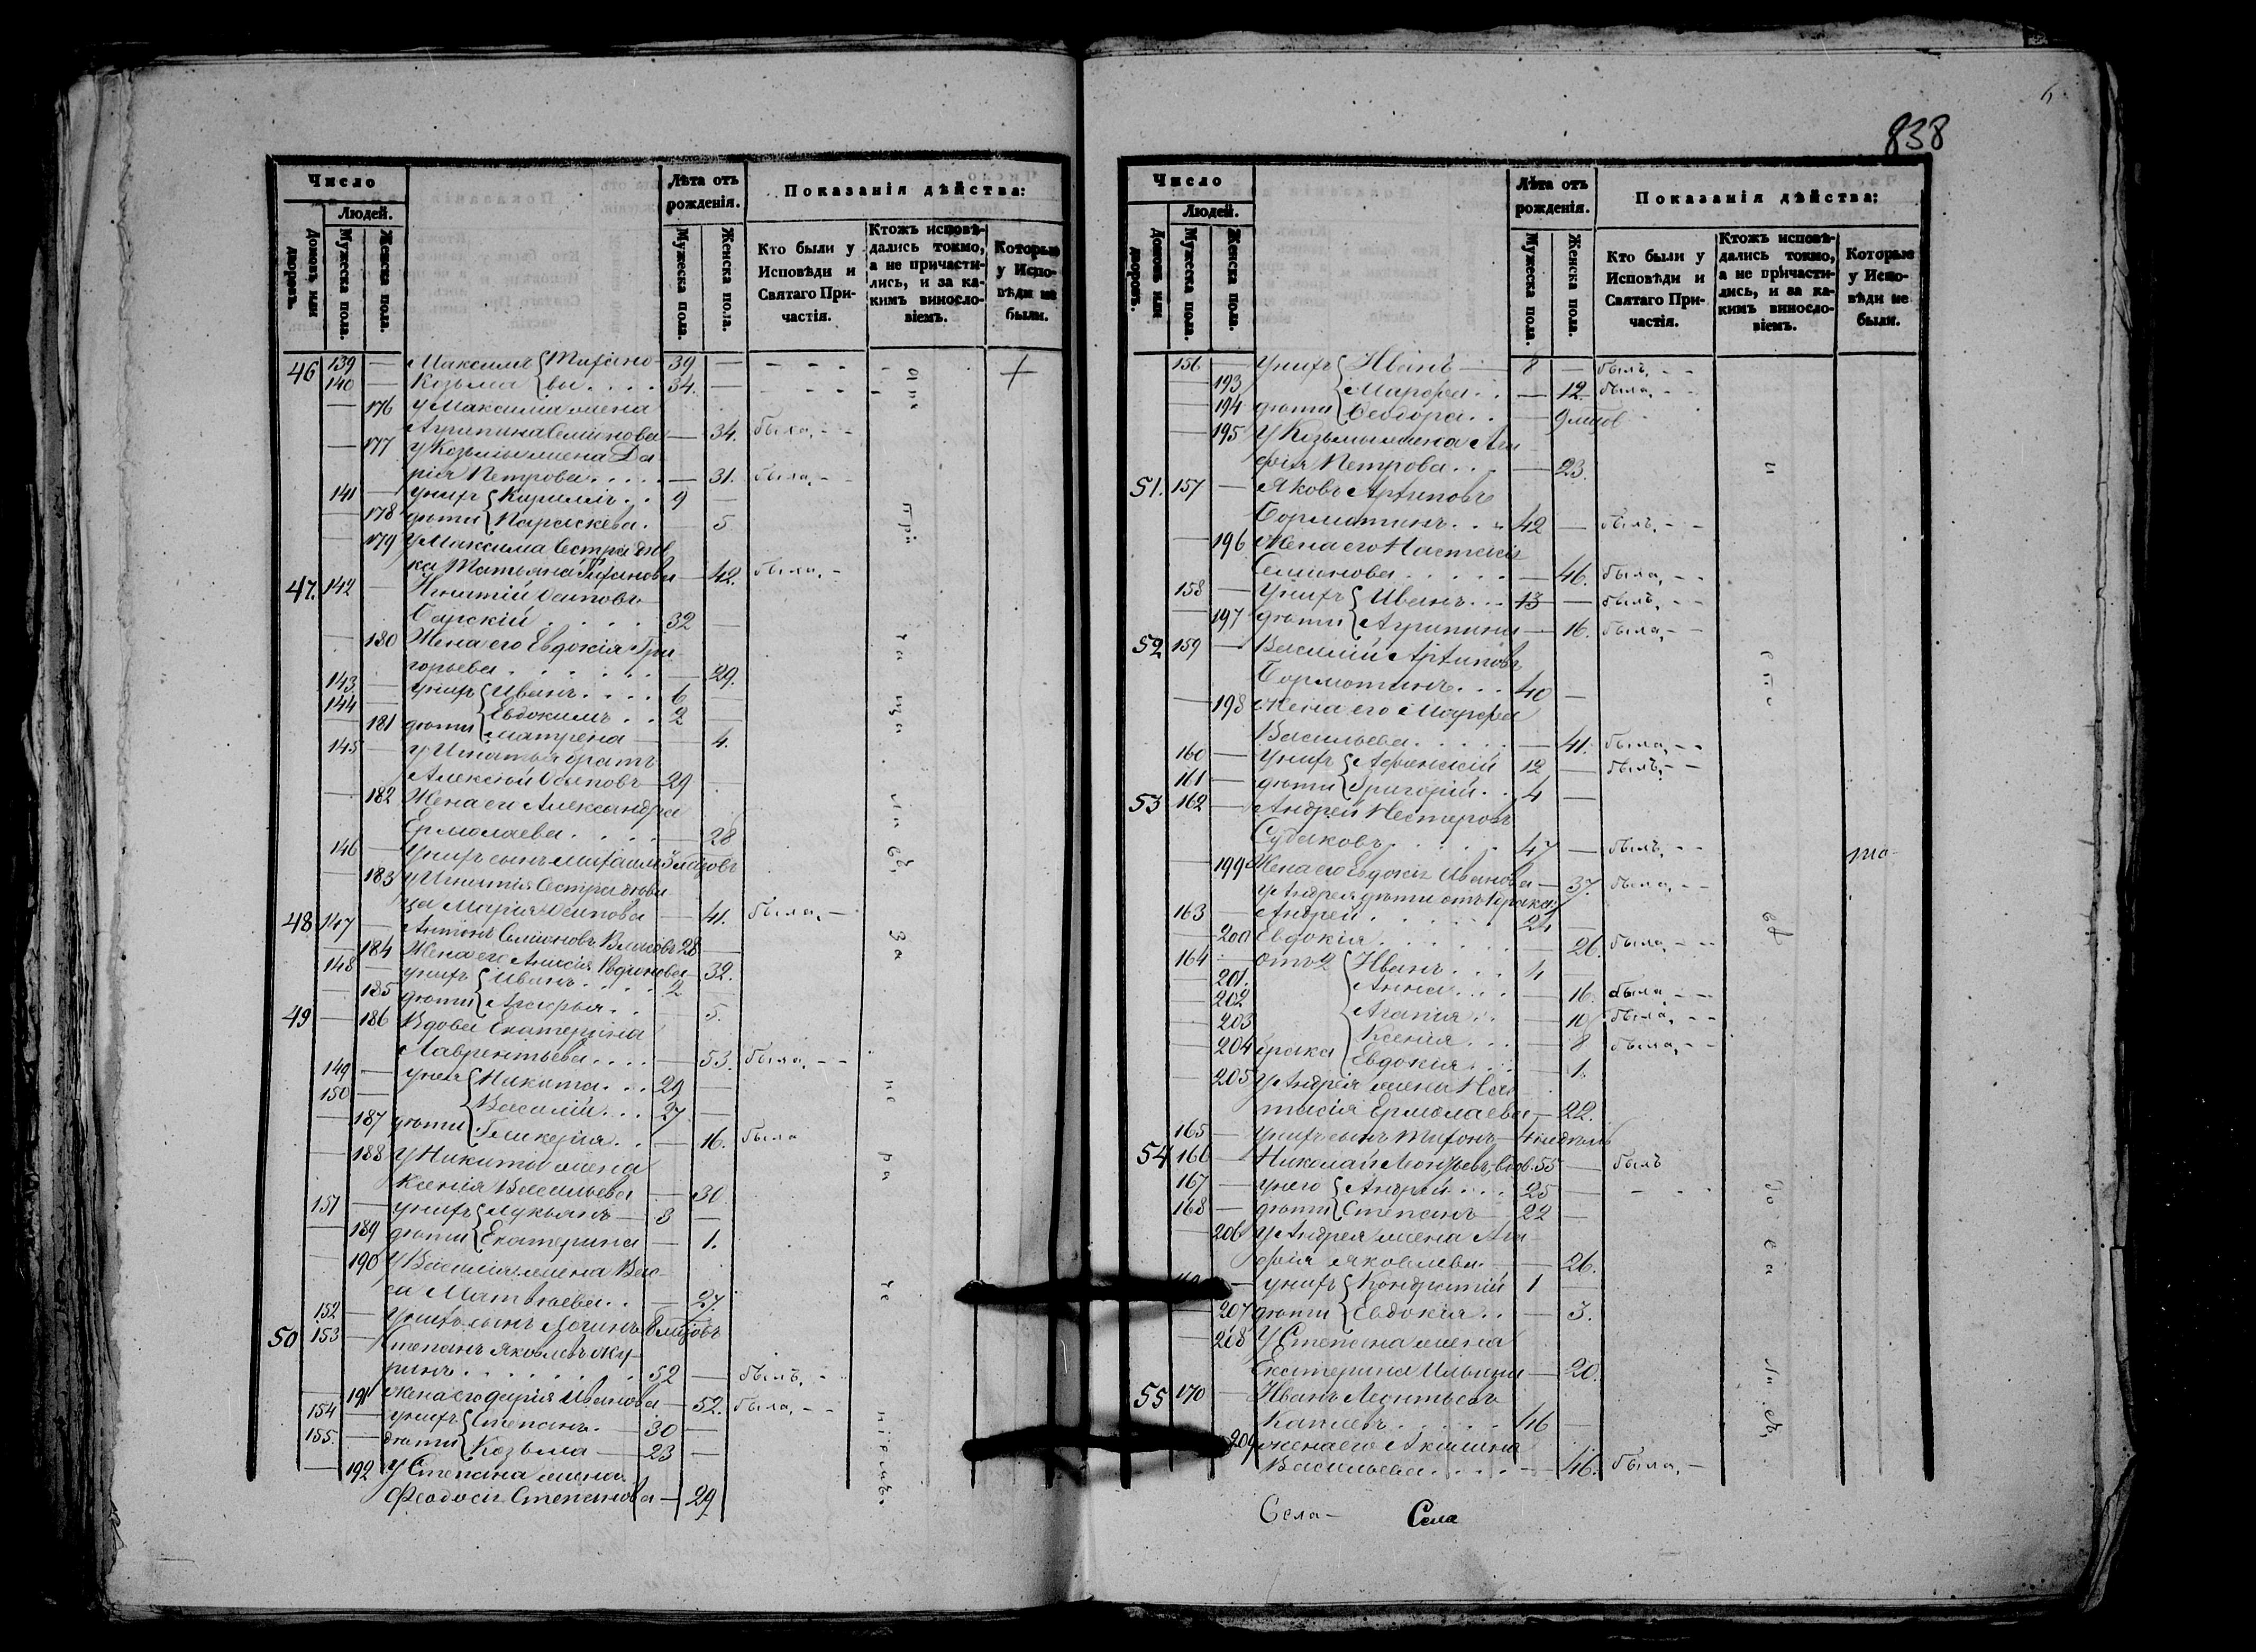 838
Число
Людей.
Домовъ или дворовъ.
Мужеска пола.
Женска пола.
Лѣта отъ рожденія.
Мужеска пола.
Женска пола.
Показанія дѣйства:
Кто были у Исповѣди и Святаго Причастія.
Ктожъ исповѣдались токмо, а не причастились, и за какимъ винословіемъ.
Которые у Исповѣди не были.
46 139 — Максимъ Трифоно- 39 —
140 — Козьма вы . . . . 34. —
— 176 у Максима жена
Агрипина Семіонова — 34. была, - -
— 177 у Козьмы жена Да
рія Петрова . . . . — 31. была, -
141 — у нихъ Кириллъ . . 9 —
— 178 дѣти Параскева . — 5
— 179 у Максима сестра дѣв
ка Татьяна — 42. была, -
47. 142 — Игнатій Осиповъ
Барскій . . . . . 32 —
— 180 Жена его Евдокія Гри
горьева . . . . . . — 29.
143 — у нихъ Иванъ . . . . 6 —
144 — Евдокимъ . . 2 —
— 181 дѣти Матрена — 4.
145 — у Игнатья братъ
Алексѣй Осиповъ 29 —
— 182 Жена его Александра
Ермолаева . . . . — 28
146 — у нихъ сынъ Михаилъ
— 183 у Игнатія сестра дѣви
ца Марія Осипова — 41. была, -
48 147 — Антонъ Семіоновъ 28 —
— 184 Жена его — 32.
148 — у нихъ Иванъ . . . . 2 —
— 185 дѣти . . — 5.
49 — 186 Вдова Екатерина
Лаврентьева . . . . — 53. была, - -
149 — у нея Никита . . . 29 —
150 — Василій . . . 27 —
— 187 дѣти Гликерія . . — 16. была
— 188 у Никиты жена
Ксенія Васильева — 30.
151 — у нихъ Лукьянъ 3 —
— 189 дѣти Екатерина — 1.
— 190 у Василія жена Вас-
са Матвѣева . . — 27.
152 — у нихъ сынъ Логинъ 8 мцовъ
50 153 — Степанъ Яковлевъ Жу-
ринъ . . . . . . . . 52 — былъ, -
— 191 Жена его Дарія Иванова — 52. была, - -
154 — у нихъ Степанъ . 30 —
155. — дѣти Козьма 23 —
— 192 у Степана жена
Феодосія Степанова — 29.
Число
Людей.
Домовъ или дворовъ.
Мужеска пола.
Женска пола.
Лѣта отъ рожденія.
Мужеска пола.
Женска пола.
Показанія дѣйства:
Кто были у Исповѣди и Святаго Причастія.
Ктожъ исповѣдались токмо, а не причастились, и за какимъ винословіемъ.
Которые у Исповѣди не были.
156 — у нихъ Иванъ 8 — былъ, - -
— 193 Марфа . . — 12 была, - -
— 194 дѣти Феодора . . — 9 мцов
— 195 У Козьмы жена Ага
фія Петрова . . . — 23.
51. 157 — Яковъ Архиповъ
Бормотинъ . . . 42 — былъ, - -
— 196 Жена его Настасія
Семіонова . . . . . — 46. была, - -
158 — у нихъ Иванъ . . . 13 — былъ, - -
— 197 дѣти Агрипина — 16. была, - -
52 159 — Василій Архиповъ
Бормотинъ . . . 40 —
— 198 Жена его Марфа
Васильева . . . . . — 41. была, - -
160 — у нихъ Афанасій 12 — былъ, - -
161 — дѣти Григорій . . 4 —
53 162 — Андрей Нестеровъ
Судаковъ . . . . . . 47 — былъ, - -
— 199 Жена его Евдокія Иванова — 37. была, - -
у Андрея дѣти отъ 1 брака:
163 — Андрей . . . . . . 24 —
— 200 Евдокія . . . . . . — 26. была, - -
164 — отъ 2 Иванъ . . . 4 —
— 201. Анна . . . . — 16. была, - -
— 202 Агапія . . — 10 была, - -
— 203 Ксенія . . . — 8 была, - -
— 204 брака Евдокія . . . — 1.
— 205 у Андрея жена Нас
тасія Ермолаева — 22.
165 — у нихъ сынъ 4 недѣль
54 166 — Николай Леонтьевъ, вдов. 55 — былъ
167 — у него Андрей . . . 25 —
168 — дѣти Степанъ 22 —
— 206 у Андрея жена Ага
фія Яковлева . — 26.
— у нихъ Кондратій 1 —
— 207 дѣти Евдокія . . — 3.
— 208 У Степана жена
Екатерина Ильина — 20.
55 170 — Иванъ Леонтьевъ
. . . . . 46 —
209 жена его Акилина
Васильева . . . . . — 46. была, -
Села — Села